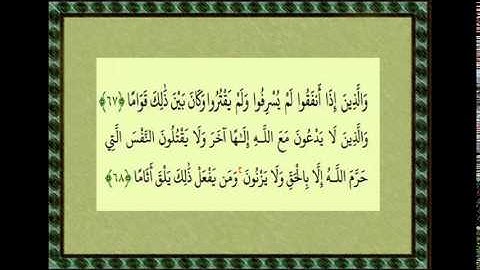 وَالَّذِينَ إِذَا أَنفَقُوا لَمْ يُسْرِفُوا وَلَمْ يَقْتُرُوا وَكَانَ بَيْنَ ذَٰلِكَ قَوَامًا ﴿٦٧﴾
وَالَّذِينَ لَا يَدْعُونَ مَعَ اللَّـهِ إِلَـٰهًا آخَرَ وَلَا يَقْتُلُونَ النَّفْسَ الَّتِي
حَرَّمَ اللَّـهُ إِلَّا بِالْحَقِّ وَلَا يَزْنُونَ ۚ وَمَن يَفْعَلْ ذَٰلِكَ يَلْقَ أَثَامًا ﴿٦٨﴾